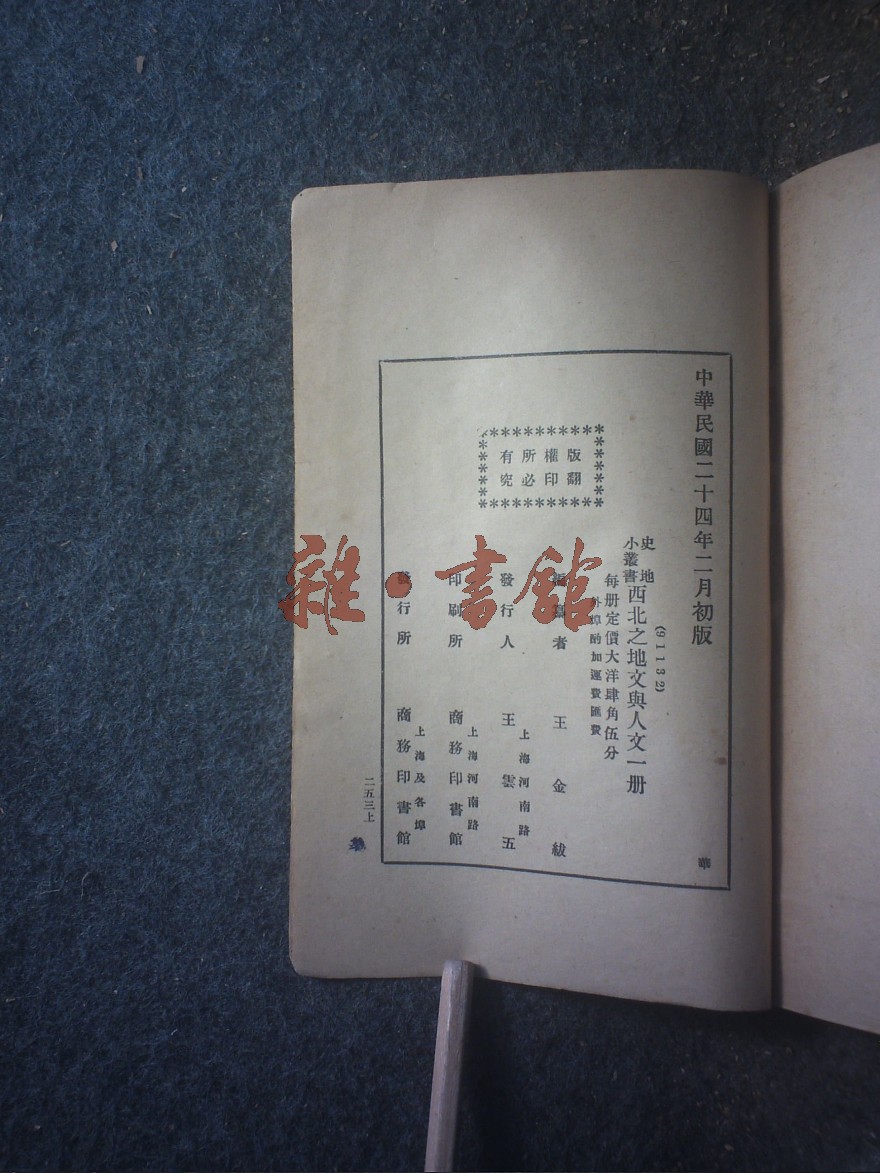 中華民國二十四年二月初版
(91132)
史地小叢書
西北之地文與人文一册
每册定價大洋肆角伍分
外埠酌加運費匯費
版權所有
翻印必究
編纂者 王金紱
發行人 王雲五
上海河南路
印刷所 商務印書館
上海河南路
發行所 商務印書館
上海及各埠
二五三上
華
雜·書館